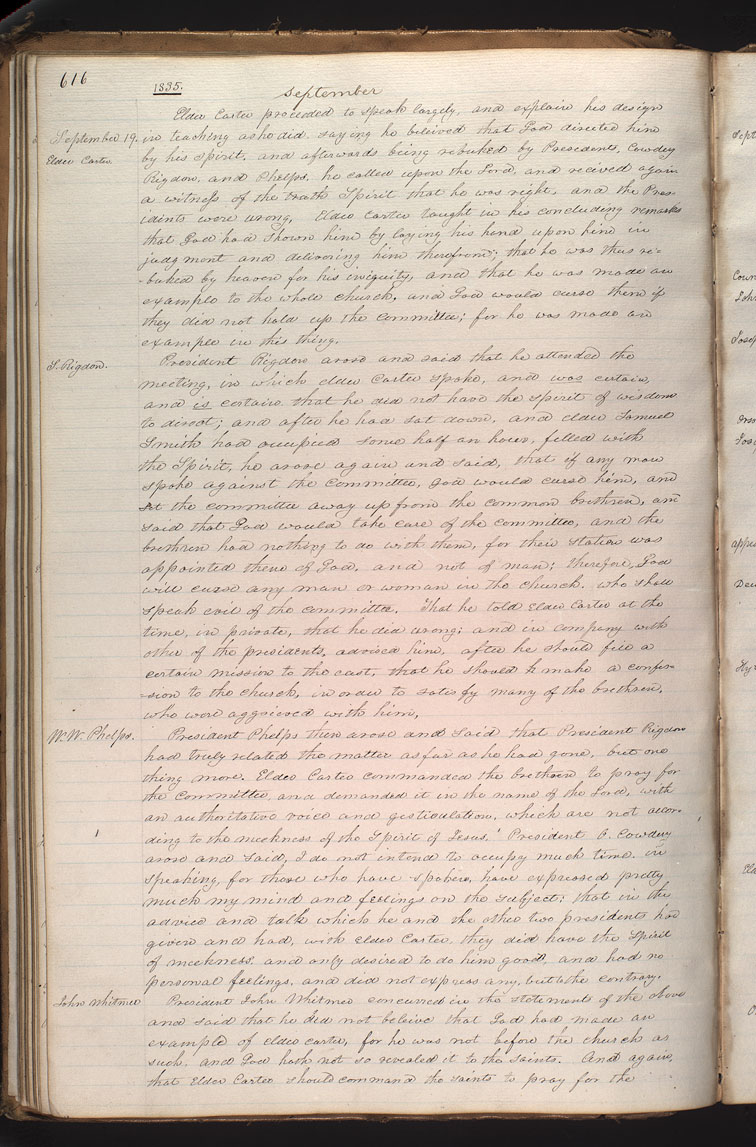 616
1835.
September
Elder Carter proceeded to speak largely, and explain his design
September 19. in teaching as he did, saying he beleived that God directed him
Elder Carter. by his spirit, and afterwards being rebuked by Presedents, Cowdery
Rigdon, and Phelps, he called upon the Lord, and recived again
a witness of the truth Spirit that he was right, and the Pres-
idents were wrong, Elder Carter taught in his concluding remarks
that God had shown him by laying his hand upon him in
judgment and delivering him therefrom; that he was thus re-
-buked by heaven for his iniquity, and that he was made an
example to the whole church, and God would curse them if
they did not hold up the Committee; for he was made an
example in this thing.
S. Rigdon. President Rigdon arose and said that he attended the
meeting, in which elder Carter spoke, and was certain,
and is certain that he did not have the spirit of wisdom
to direct; and after he had sat down, and elder Samuel
Smith had occupied some half an hour, filled with
the Spirit, he arose again and said, that if any man
spoke against the Committee, God would curse him, and
set the committee away up from the common brethren, and
said that God would take care of the committee, and the
brethren had nothing to do with them, for their station was
appointed them of God, and not of man; therefore, God
will curse any man or woman in the church. who shall
speak evil of the committee. That he told Elder Carter at the
time, in private, that he did wrong; and in company with
other of the presidents, advised him, after he should
certain mission to the east, that he should make a confes-
-sion to the church, in order to satisfy many of the brethren,
who were aggrieved with him,
W. W. Phelps. President Phelps then arose and said that President Rigdon
had truly related the matter as far as he had gone, but one
thing more. Elder Carter commanded the brethren to pray for
the Committee, and demanded it in the name of the Lord, with
an authoritative voice and gesticulation, which are not accor-
ding to the meekness of the Spirit of Jesus. President O. Cowdery
arose and said, I do not intend to occupy much time in
speaking, for those who have spoken, have expressed pretty
much my mind and feelings on the subject; that in the
advice and talk which he and the other two presidents had
given and had, with elder Carter, they did have the Spirit
of meekness, and only desired to do him good, and had no
personal feelings, and did not express any, but to the contrary.
John Whitmer President John Whitmer concurred in the statements of the above
and said that he did not beleive that God had made an
example of elder carter, for he was not before the church as
such. and God hath not so revealed it to the saints. And again,
that Elder Carter should command the saints to pray for the
Sept
Coun
John
Josep
Orso
Jos
appe
Deu
Hyr
Eld
O.